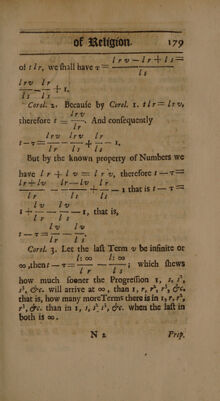 of Religion. 179
of t l r, we shall have τ = l r v − l r + l s = / l s
l r v / l s − l r / l s + 1.
Corol. 2. Because by Corol. 1. t l r = l s v,
therefore t = l r v / l r . And consequently
t − τ = l r v / l r − l r v / l s + l r / l s − 1.
But by the known property of Numbers we
have l r + l v = l r v, therefore t − τ =
l r + l v / l r − l r − l v / l s + l r / l s − 1 that is t − τ =
1 + l v / l r − l v / l s − 1, that is,
t − τ = l v / l r − l v / l s .
Corol. 3. Let the last Term v be infinite or
∞, then t − τ = l: ∞ / l r − l: ∞ / l s ; which shews
how much sooner the Progression 1, s, s²,
s³, &c. will arrive at ∞, than 1, r, r², r³, &c.
that is, how many more Terms there is in 1, r, r²,
r³, &c. than in 1, s, s², s³, &c. when the last in
both is ∞.
N 2 Prop.